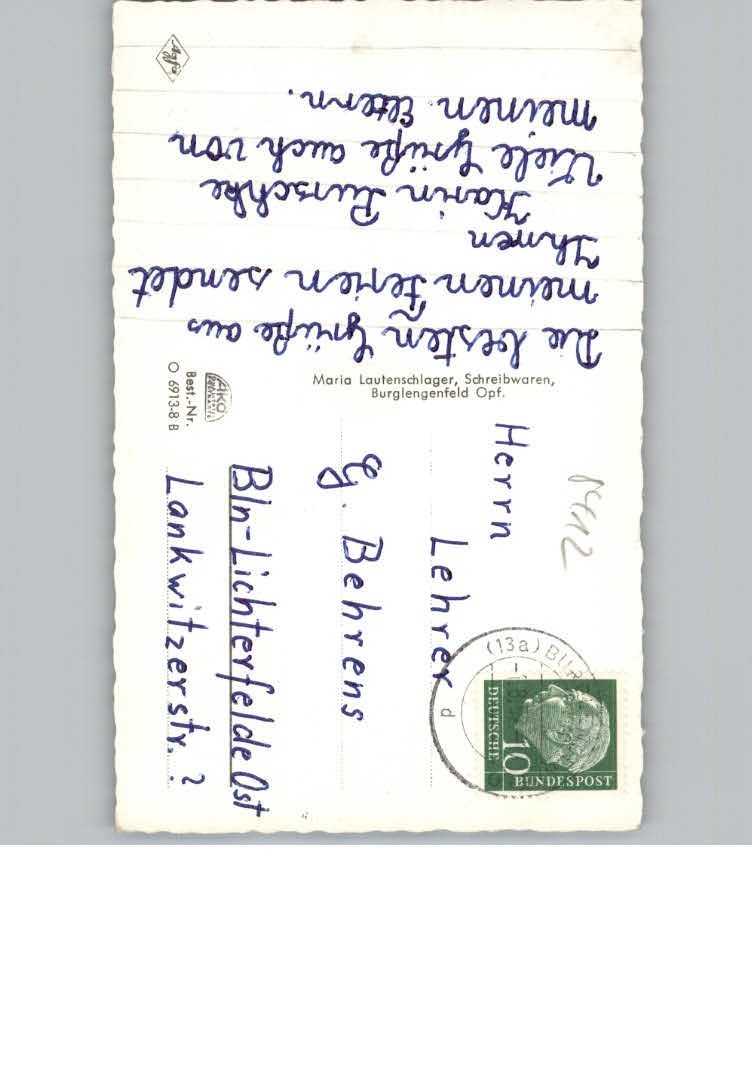 Agfa
Die besten Grüße aus
meinen Ferien sendet
Ihnen
Karin Purschke
Viele Grüße auch von
meinen Eltern.
Maria Lautenschlager, Schreibwaren,
Burglengenfeld Opf.
Best.-Nr.
O 6913-8 B
Herrn
Lehrer
Eg. Behrens
Bln-Lichterfelde Ost
Lankwitzerstr. 2
(13a) BUR
p
10
DEUTSCHE
BUNDESPOST